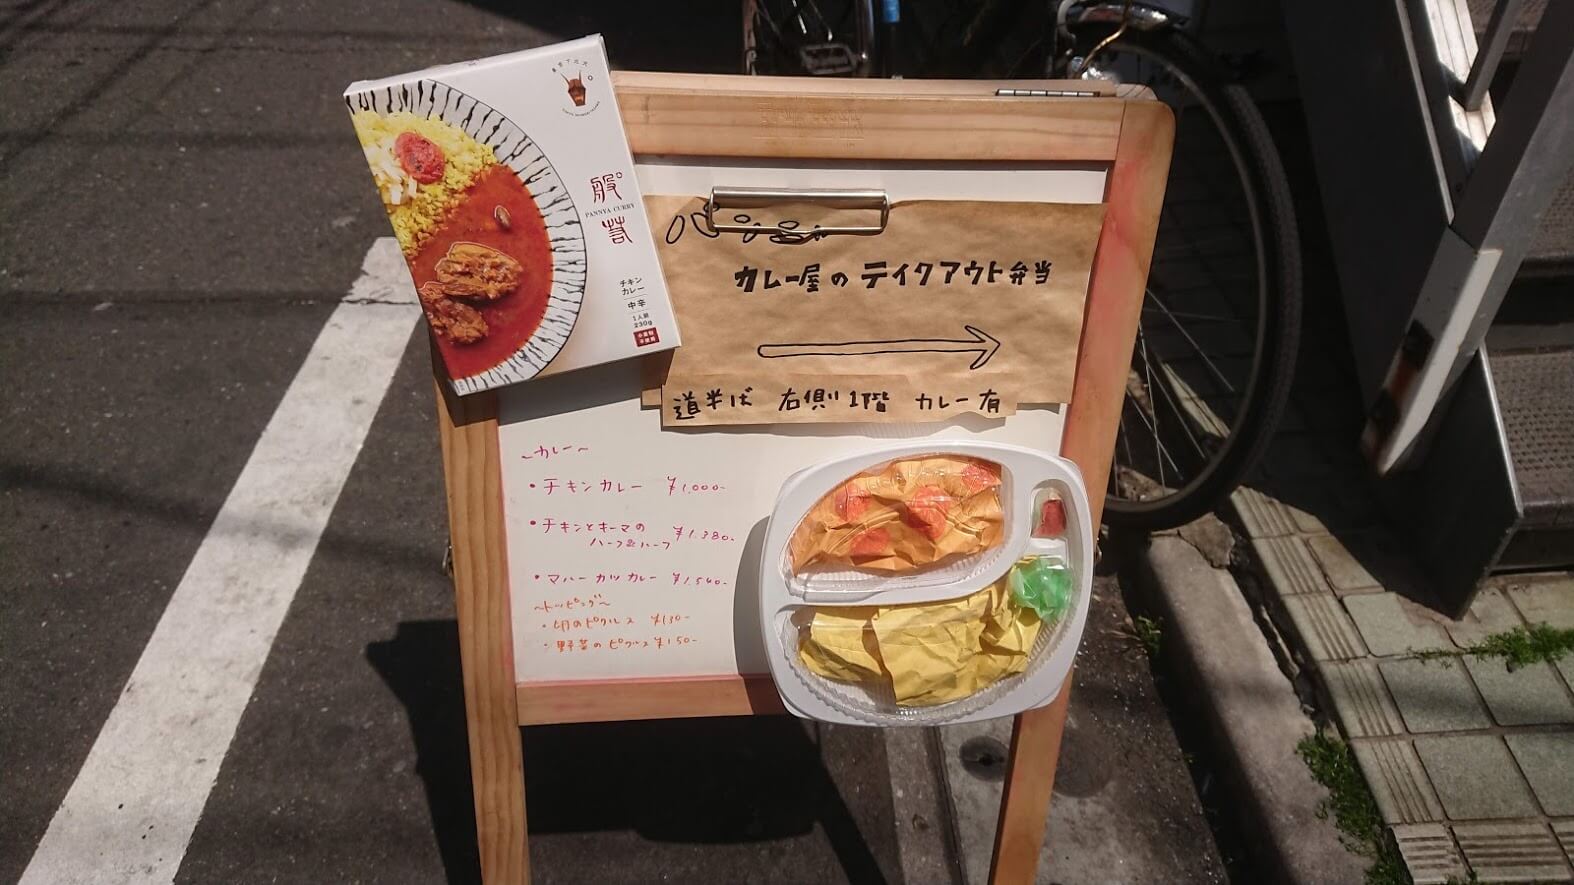 般°若
PANNYA CURRY
チキン
カレー
中辛
1人前
230g
カレー屋の テイクアウト弁当
道半ば 右側 1階 カレー有
~カレー~
・チキンカレー ¥1,000-
・チキンとキーマの
ハーフ&ハーフ ¥1.380-
・マハーカツカレー ¥1,540-
~トッピング~
・卵のピクルス ¥130-
・野菜のピクルス ¥150-